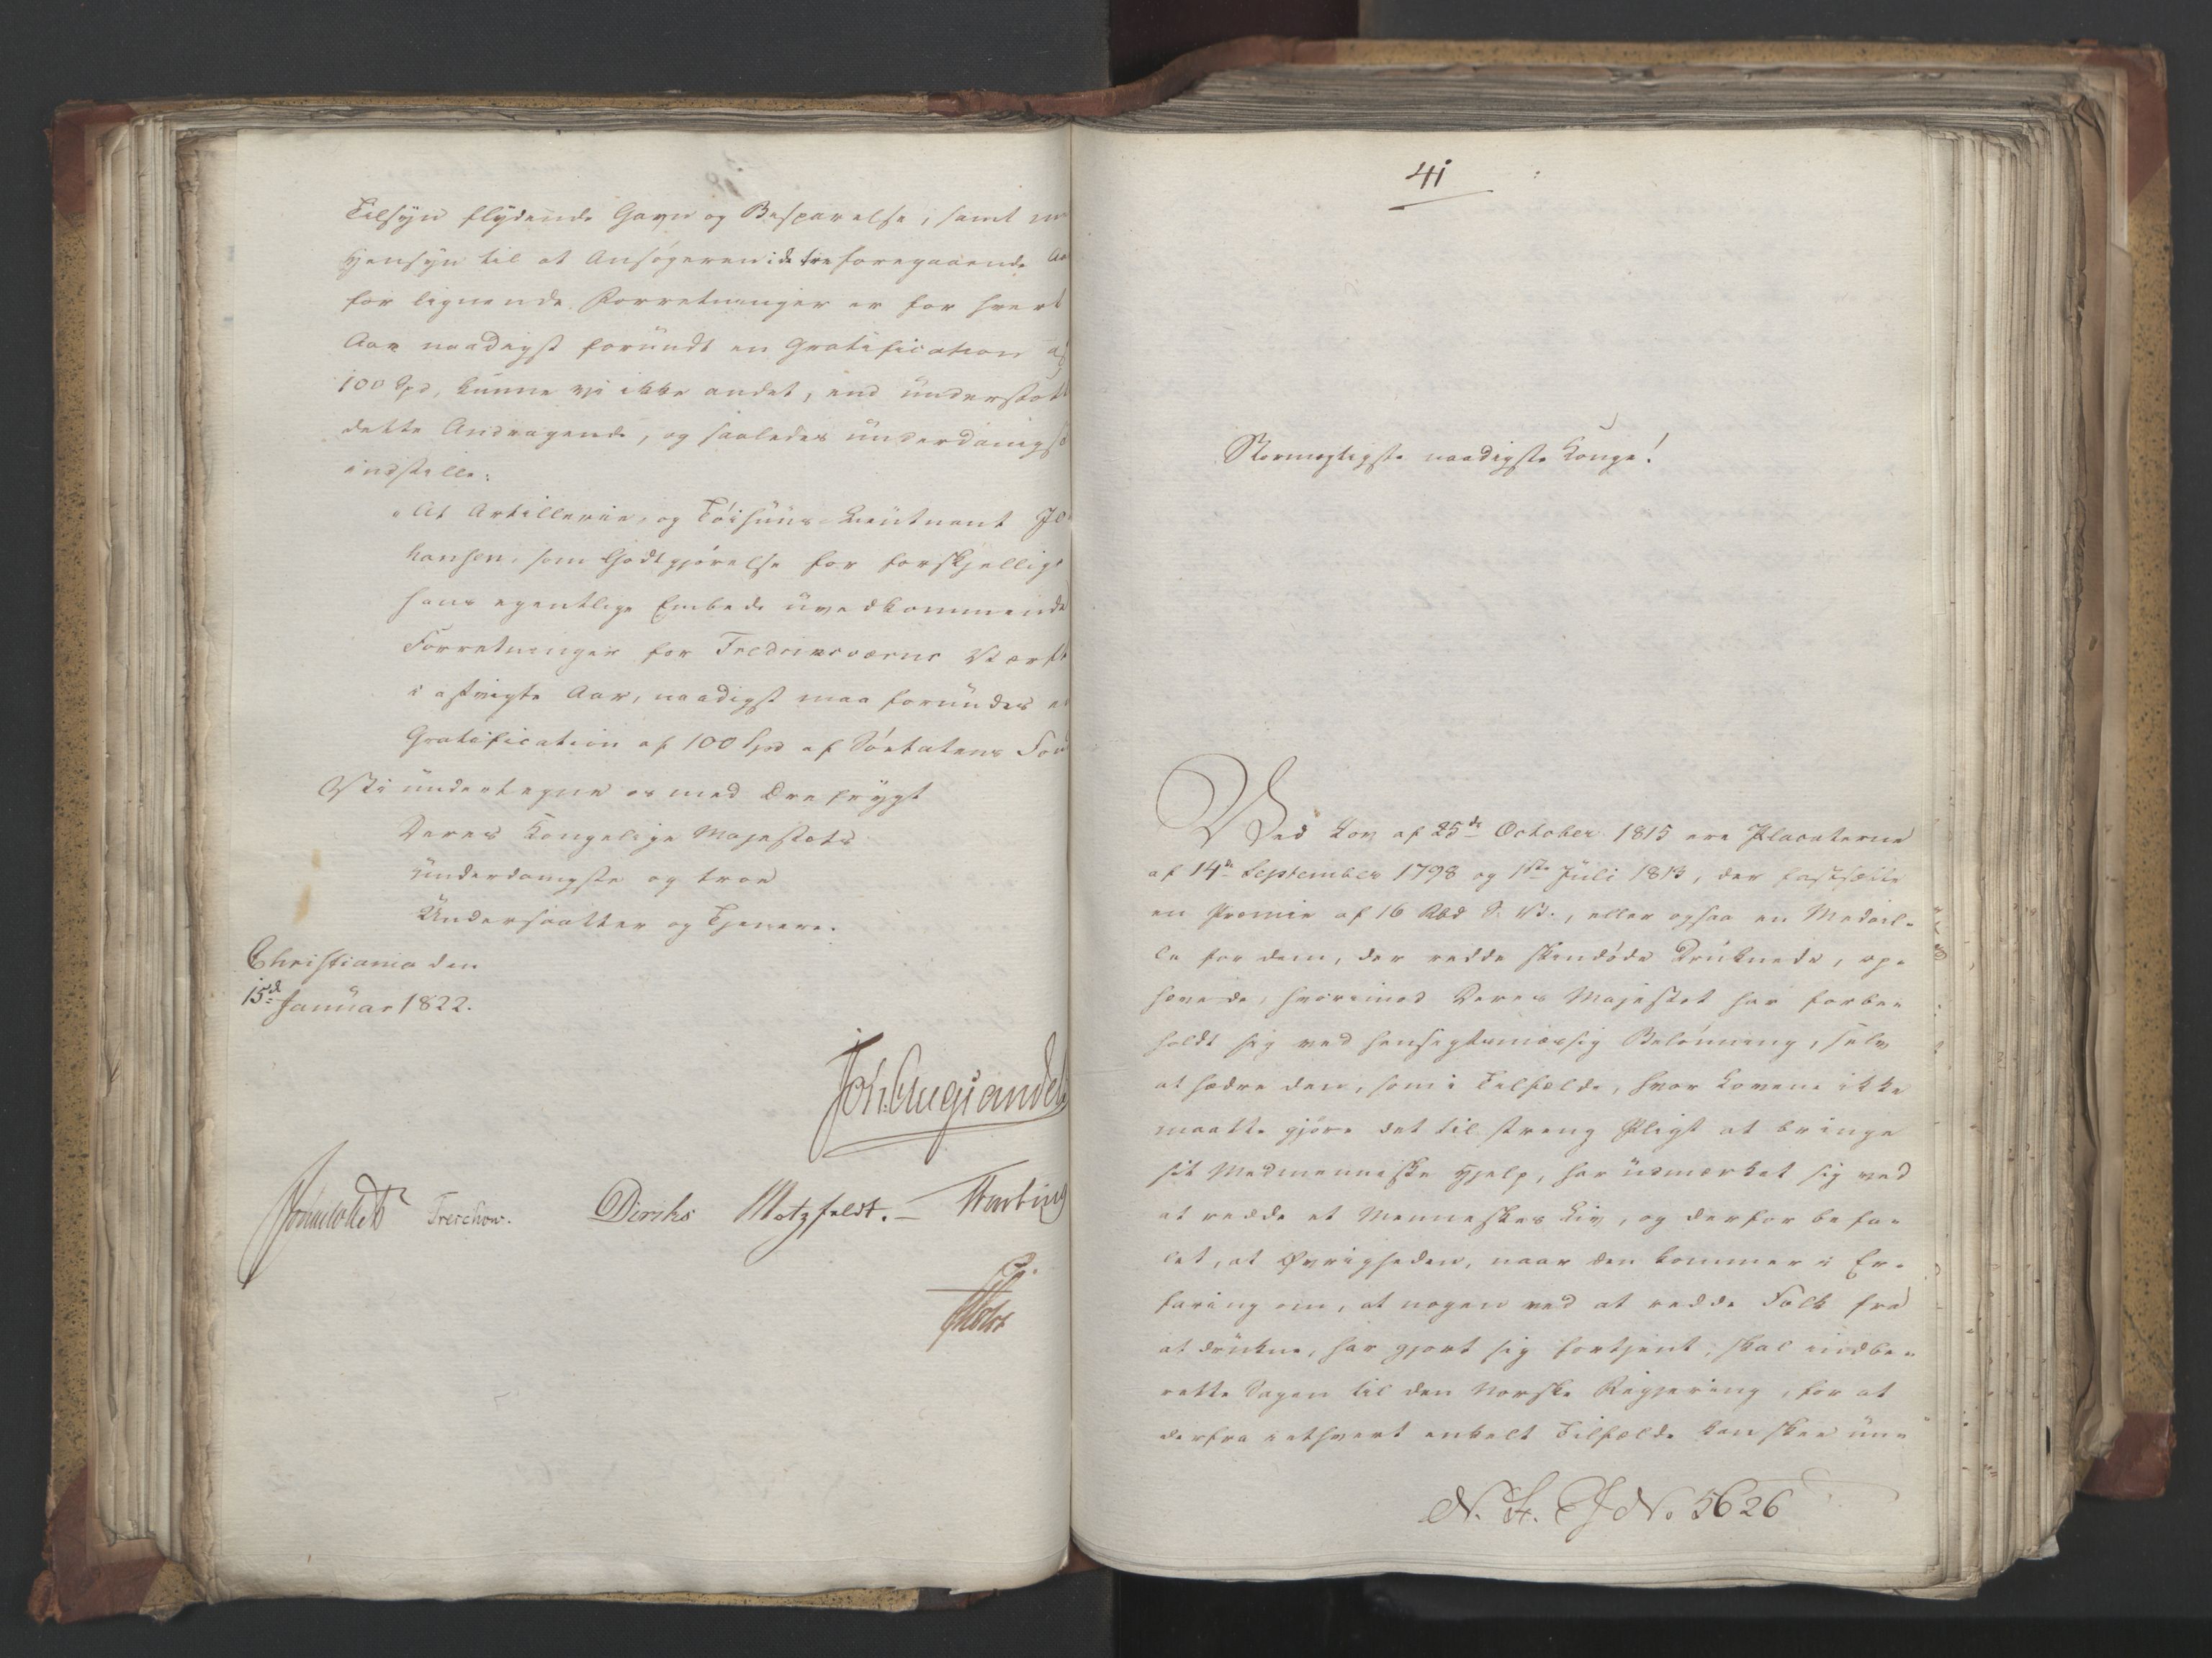 Tilsyn flydende Gavn og Besparelse, samt m
Hensyn til at Ansøgeren i de tre foregaaende Aa
for lignende Forretninger er for hvert
Aar naadigst forundt en Gratification af
100 Spd, kunne vi ikke andet, end understøtt
dette Andragende, og saaledes underdanigst
indstille:
"At Artillerie- og Tøihuus-Lieutnant Jo
hansen, som Godtgjørelse for forskjellige
hans egentlige Embede uvedkommende
Forretninger for Fredriksværns Værft
i afvigte Aar, naadigst maa forundes en
Gratification af 100 Spd af Søetatens Fon
Vi undertegne os med Ærefrygt
Deres Kongelige Majestæts
underdanigste og troe
Undersaatter og Tjenere.
Christiania den
15d Januar 1822.
Joh: Aug: Sandels
Sommerhielm Treschow. Diriks Motzfeldt. Fasting
Holst
41
Stormægtigste naadigste Konge!
Ved Lov af 25de October 1815 ere Placaterne
af 14de September 1798 og 1ste Juli 1813, der fastsætte
en Præmie af 16 Rbd S. V., eller ogsaa en Medail-
le for dem, der redde skindøde Druknede, op-
hævede, hvorimod Deres Majestet har forbe-
holdt sig ved hensigtsmæssig Belønning, selv
at hædre den, som i Tilfælde, hvor Lovene ikke
maatte gjøre det til streng Pligt at bringe
sit Medmenneske Hjelp, har udmærket sig ved
at redde et Menneskes Liv, og derfor befa-
let, at Øvrigheden, naar den kommer i Er-
faring om, at nogen ved at redde Folk fra
at drukne, har gjort sig fortjent, skal indbe-
rette Sagen til den Norske Regjering, for at
derfra i ethvert enkelt Tilfælde kan skee un-
No. 5626